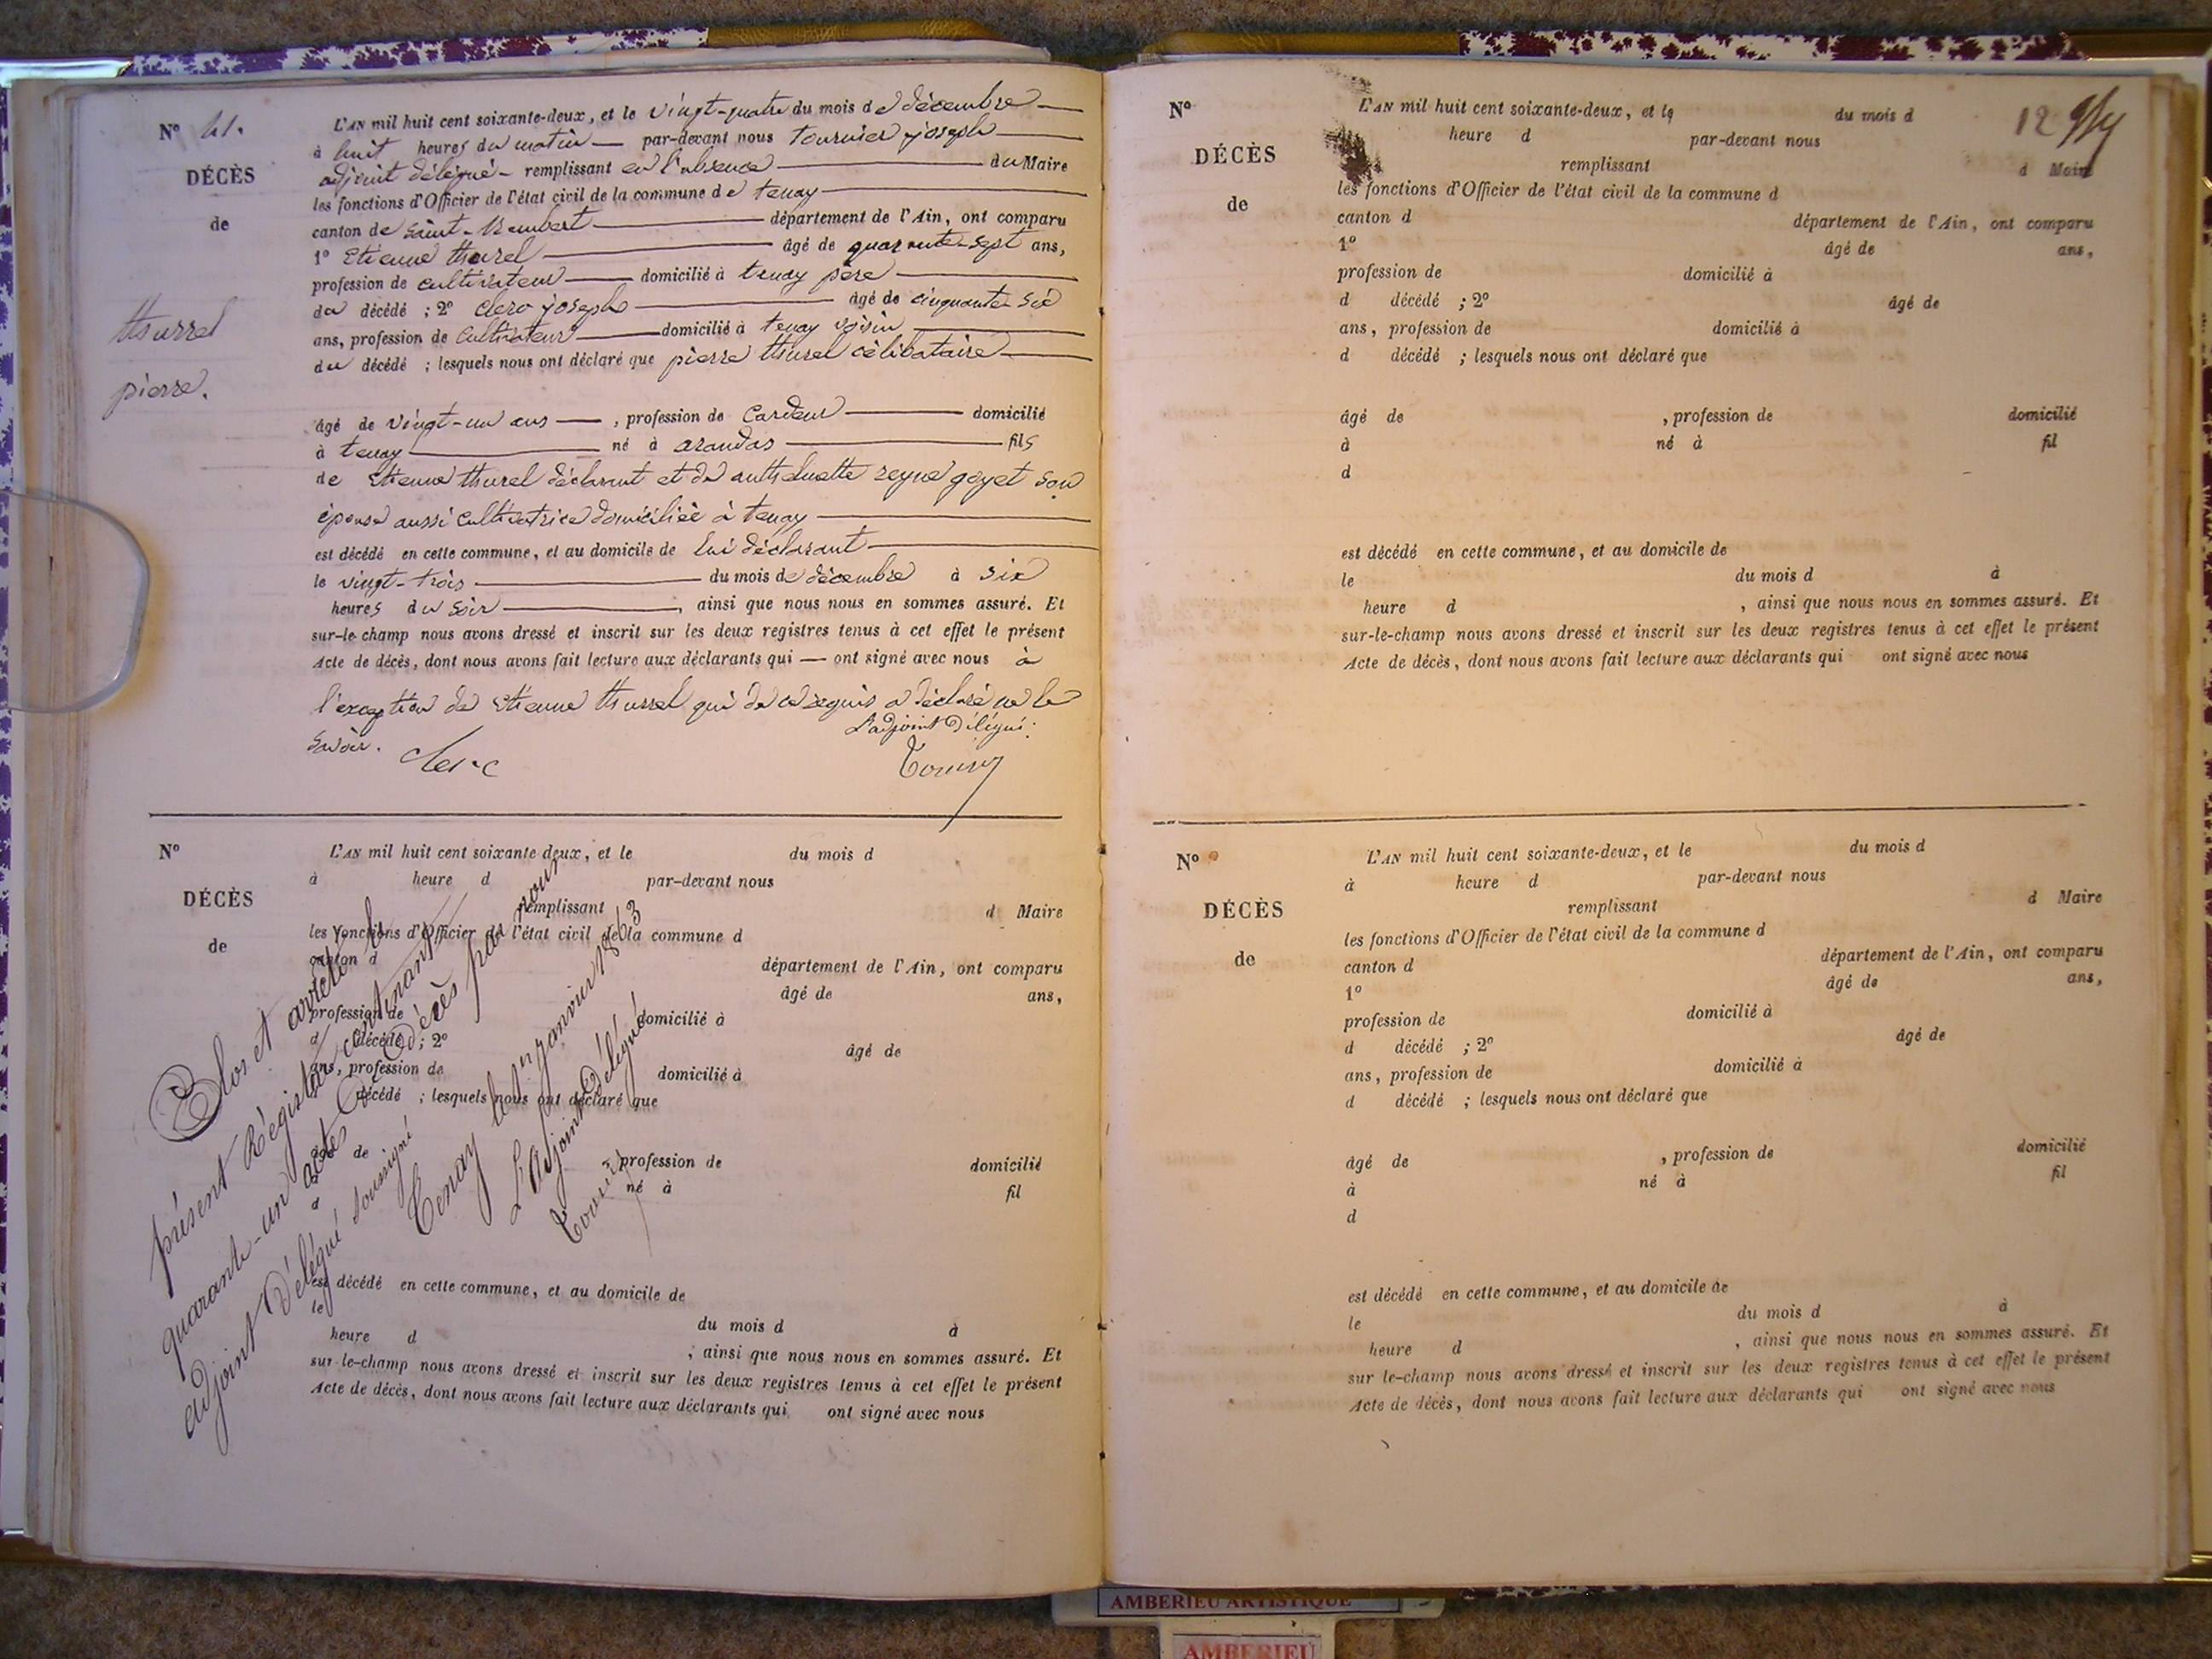 N° 41.
DÉCÈS
de
thurrel
pierre.
L'AN mil huit cent soixante-deux, et le vingt-quatre du mois de décembre
à huit heures du matin par-devant nous tournier joseph
adjoint délégué remplissant en l'absence du Maire
les fonctions d'Officier de l'état civil de la commune de tenay
canton de saint-Rambert département de l'Ain, ont comparu
1° Etienne thurel âgé de quarante-sept ans,
profession de cultivateur domicilié à tenay père
du décédé ; 2° clerc joseph âgé de cinquante six
ans, profession de cultivateur domicilié à tenay voisin
du décédé ; lesquels nous ont déclaré que pierre thurel célibataire
âgé de vingt-un ans , profession de Cardeur domicilié
à tenay né à arandas fils
de Etienne thurel déclarant et de anthelmette reyne goyet son
épouse aussi cultivatrice domiciliée à tenay
est décédé en cette commune, et au domicile de lui déclarant
le vingt-trois du mois de décembre à six
heures du soir , ainsi que nous nous en sommes assuré. Et
sur-le-champ nous avons dressé et inscrit sur les deux registres tenus à cet effet le présent
Acte de décès, dont nous avons fait lecture aux déclarants qui — ont signé avec nous à
l'exception de Etienne thurrel qui de ce requis a déclaré ne le
savoir.
L'adjoint Délégué :
clerc
Tournier
N°
DÉCÈS
de
L'AN mil huit cent soixante-deux, et le du mois d
à heure d par-devant nous
remplissant d Maire
les fonctions d'Officier de l'état civil de la commune d
canton d département de l'Ain, ont comparu
âgé de ans,
profession de domicilié à
d décédé ; 2° âgé de
ans, profession de domicilié à
décédé ; lesquels nous ont déclaré que
âgé de profession de domicilié
à né à fil
est décédé en cette commune, et au domicile de
le du mois d à
heure d , ainsi que nous nous en sommes assuré. Et
sur-le-champ nous avons dressé et inscrit sur les deux registres tenus à cet effet le présent
Acte de décès, dont nous avons fait lecture aux déclarants qui ont signé avec nous
Clos et arrêté le
présent Régistre contenant
quarante-un actes de Décès par nous
adjoint Délégué soussigné
Tenay le 1er janvier 1863
L'Adjoint Délégué
Tournier
12
N°
DÉCÈS
de
L'AN mil huit cent soixante-deux, et le du mois d
heure d par-devant nous
remplissant d Maire
les fonctions d'Officier de l'état civil de la commune d
canton d département de l'Ain, ont comparu
1° âgé de ans,
profession de domicilié à
d décédé ; 2° âgé de
ans, profession de domicilié à
d décédé ; lesquels nous ont déclaré que
âgé de , profession de domicilié
à né à fil
d
est décédé en cette commune, et au domicile de
le du mois d à
heure d , ainsi que nous nous en sommes assuré. Et
sur-le-champ nous avons dressé et inscrit sur les deux registres tenus à cet effet le présent
Acte de décès, dont nous avons fait lecture aux déclarants qui ont signé avec nous
N°
DÉCÈS
de
L'AN mil huit cent soixante-deux, et le du mois d
à heure d par-devant nous
remplissant d Maire
les fonctions d'Officier de l'état civil de la commune d
canton d département de l'Ain, ont comparu
1° âgé de ans,
profession de domicilié à
d décédé ; 2° âgé de
ans, profession de domicilié à
d décédé ; lesquels nous ont déclaré que
âgé de , profession de domicilié
à né à fil
d
est décédé en cette commune, et au domicile de
le du mois d à
heure d , ainsi que nous nous en sommes assuré. Et
sur le-champ nous avons dressé et inscrit sur les deux registres tenus à cet effet le présent
Acte de décès, dont nous avons fait lecture aux déclarants qui ont signé avec nous
AMBERIEU ARTISTIQUE
AMBERIEU